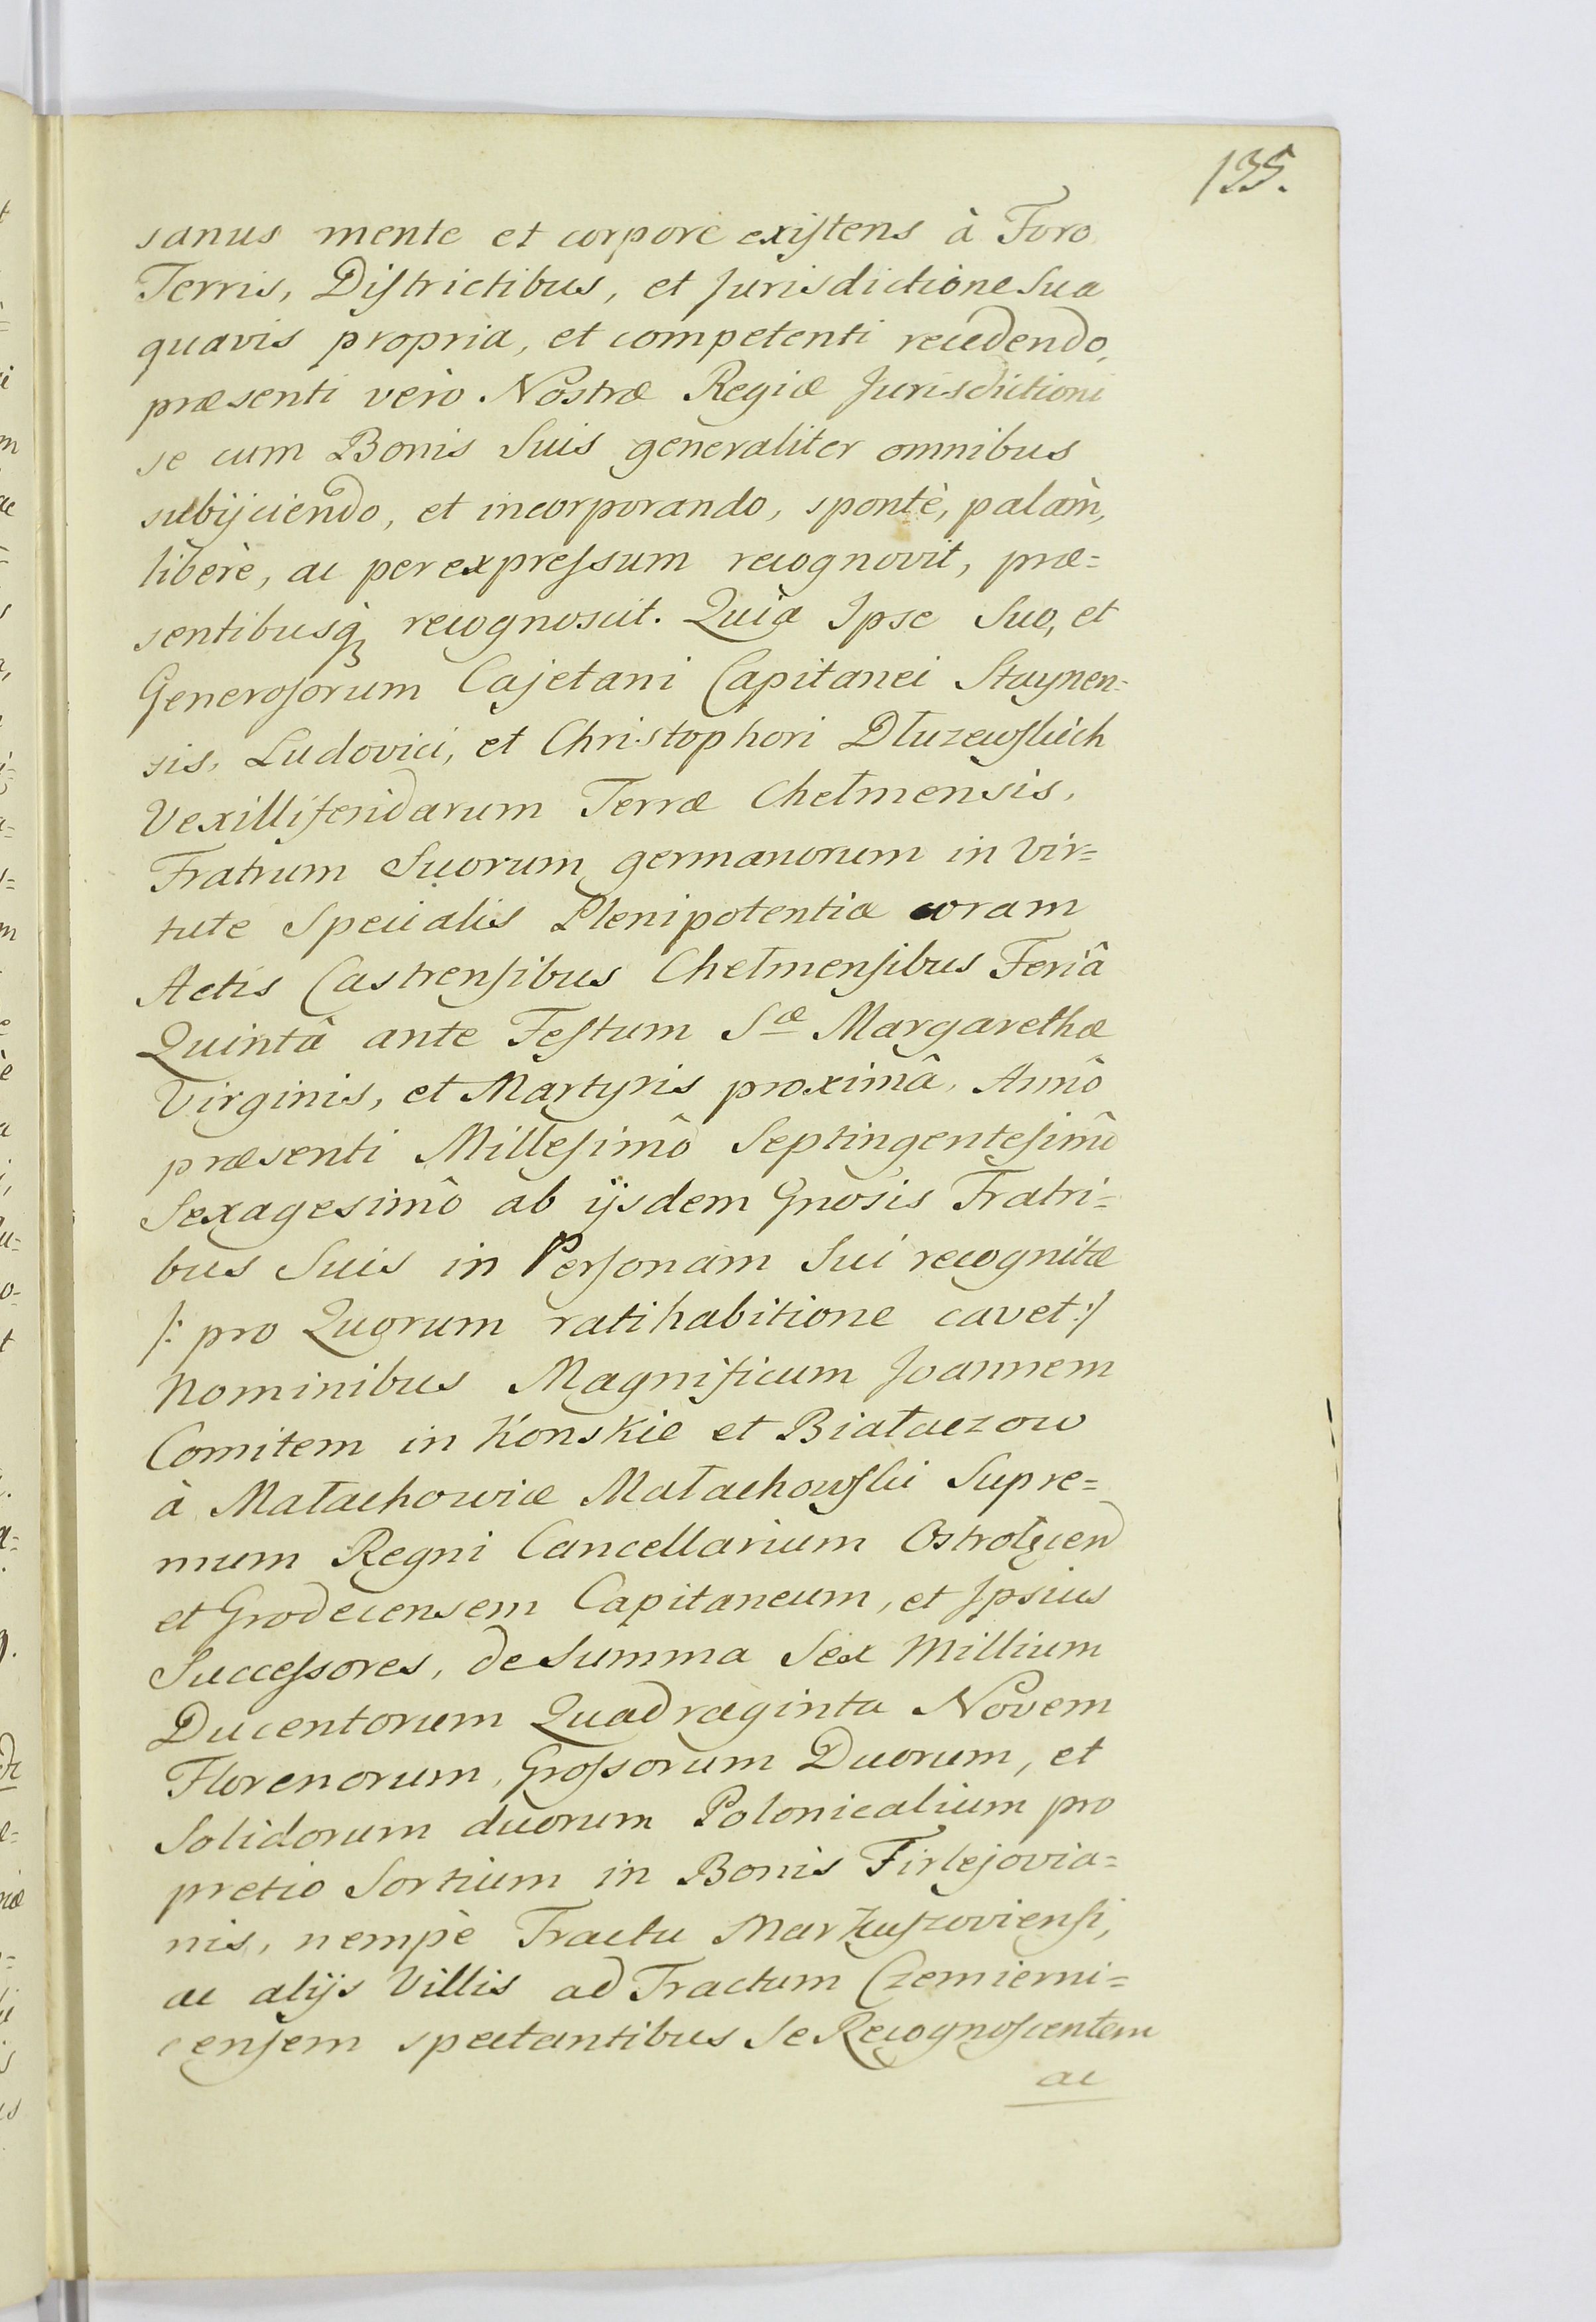 135.
sanus mente et corpore existens à Foro
Terris, Districtibus, et Jurisdictione Sua
quavis propria, et competenti recedendo,
præsenti verò Nostræ Regiæ Jurisdictioni
se cum Bonis Suis generaliter omnibus
subijciendo, et incorporando, spontè, palàm,
liberè, ac per expressum recognovit, præ=
sentibusq recognoscit. Quia Ipse Suo, et
Generosorum Cajetani Capitanei Staynen=
sis, Ludovici, et Christophori Dłuzewskich
Vexilliferidarum Terræ Chełmensis,
Fratrum Suorum germanorum in vir=
tute Specialis Plenipotentiæ coram
Actis Castrensibus Chełmensibus Feriâ
Quintâ ante Festum Sæ Margarethæ
Virginis, et Martyris proximâ, Annô
præsenti Millesimô Septingentesimô
Sexagesimô ab ijsdem Gnosis Fratri=
bus Suis in Personam Sui recognitæ
/: pro Quorum ratihabitione cavet :/
Nominibus Magnificum Joannem
Comitem in Konskie et Białaczow
à Małachowice Małachowski Supre=
mum Regni Cancellarium Ostrołęcen
et Grodecensem Capitaneum, et Ipsius
Successores, de Summa Sex Millium
Ducentorum Quadraginta Novem
Florenorum, Grossorum Duorum, et
Solidorum duorum Polonicalium pro
pretio Sortium in Bonis Firlejovia=
nis, nempè Tractu Markuszoviensi,
ac alijs Villis ad Tractum Czemierni=
censem spectantibus Se Recognoscentem
ac